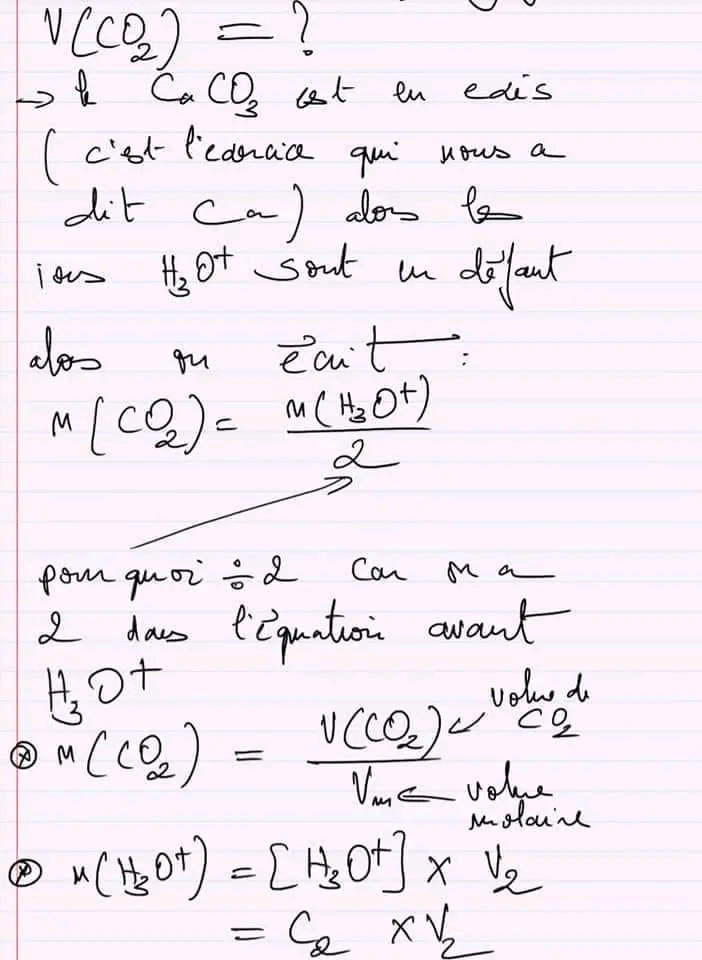 V(CO₂) = ?
→ le CaCO₃ est en exès
( c'est l'exercice qui nous a
dit Ca) alors les
ions H₃O⁺ sont en défaut
alors on écrit :
n(CO₂) = n(H₃O⁺) / 2
pourquoi ÷ 2 car on a
2 dans l'équation avant
H₃O⁺
⊗ n(CO₂) = V(CO₂) / Vm
← volume de CO₂
← volume molaire
⊗ n(H₃O⁺) = [H₃O⁺] × V₂
= C₂ × V₂